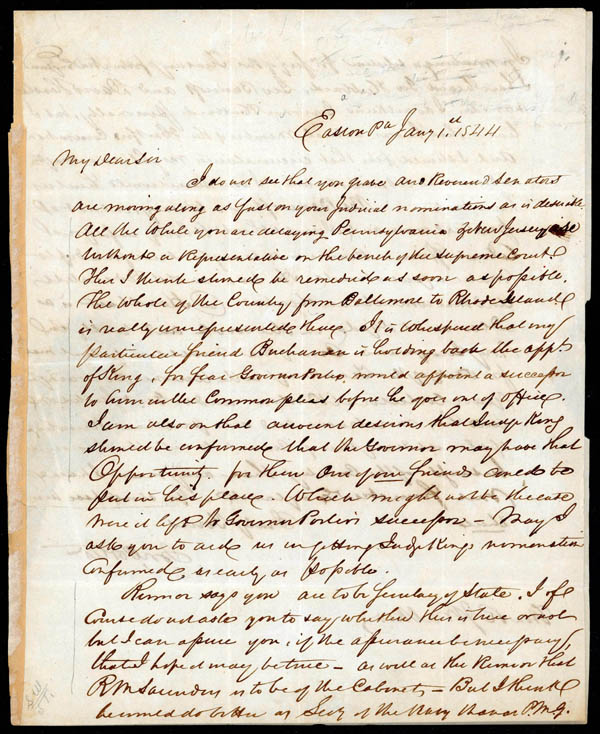 Easton Pa Jany 1st 1844
My Dear Sir
I do not see that you grave and Reverend Senators
are moving along as fast on your Judicial nominations as is desirable
All the while you are delaying Pennsylvania & New Jersey are
without a Representative on the bench of the Supreme Court.
This I think should be remedied as soon as possible.
The whole of the Country from Baltimore to Rhode Island
is really unrepresented there. It is whispered that my
particular friend Buchanan is holding back the appt.
of King, for fear Governor Porter would appoint a successor
to him in the Common pleas before he goes out of office.
I am also on that account desirous that Judge King
should be confirmed that the Governor may have that
Opportunity. for then one of your friends could be
put in his place. Which might not be the case
were it left to Governor Porter's successor – May I
ask you to aid us in getting Judge King's nomination
Confirmed as early as Possible.
Rumor says you are to be Secretary of State. I of
Course do not ask you to say whether this is true or not
but I can assure you, if the assurance be necessary,
that I hope it may be true – as well as the Rumor that
R M Saunders is to be of the Cabinet – But I think
he would do better as Secy of the Navy than as P.M.G.